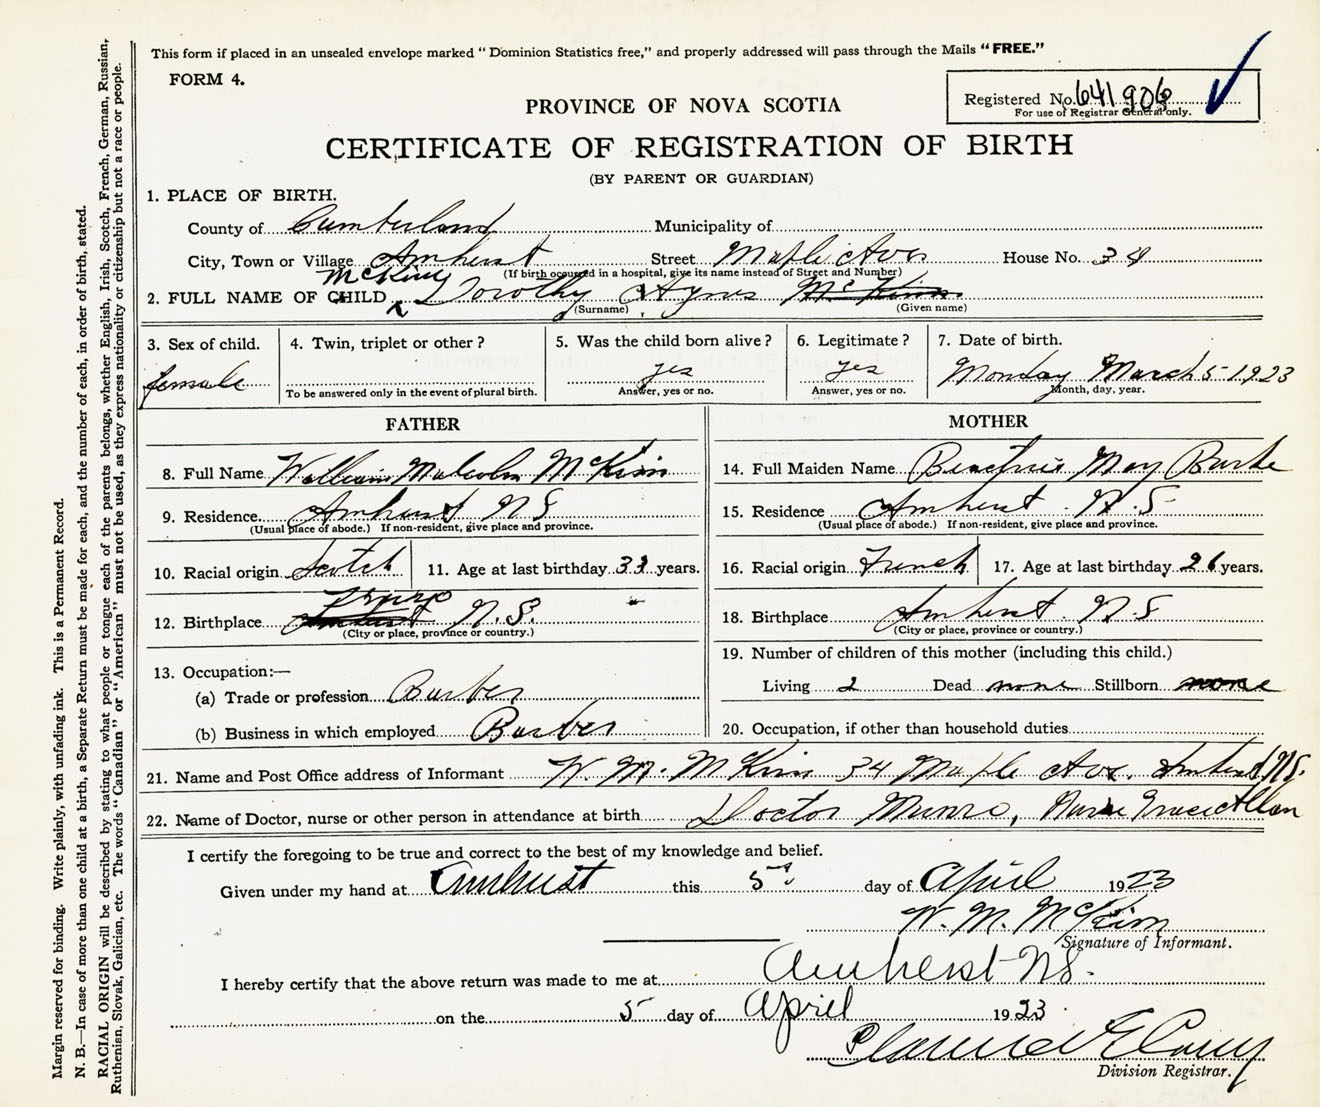 This form if placed in an unsealed envelope marked "Dominion Statistics free," and properly addressed will pass through the Mails "FREE."
FORM 4.
Registered No. 641906
For use of Registrar General only.
PROVINCE OF NOVA SCOTIA
CERTIFICATE OF REGISTRATION OF BIRTH
(BY PARENT OR GUARDIAN)
1. PLACE OF BIRTH.
County of Cumberland Municipality of
City, Town or Village Amherst Street Maple Ave House No. 34
(If birth occured in a hospital, give its name instead of Street and Number)
McKim
2. FULL NAME OF CHILD Dorothy Agnes McKim
(Surname) (Given name)
3. Sex of child. female
4. Twin, triplet or other?
To be answered only in the event of plural birth.
5. Was the child born alive? yes
Answer, yes or no.
6. Legitimate? yes
Answer, yes or no.
7. Date of birth.
Monday March 5 1923
Month, day, year.
FATHER
8. Full Name William Malcolm McKim
9. Residence Amherst N S
(Usual place of abode.) If non-resident, give place and province.
10. Racial origin Scotch 11. Age at last birthday 33 years.
12. Birthplace Amherst Truro N.S.
(City or place, province or country.)
13. Occupation:—
(a) Trade or profession Barber
(b) Business in which employed Barber
MOTHER
14. Full Maiden Name Beatrice May Burke
15. Residence Amherst N.S
(Usual place of abode.) If non-resident, give place and province.
16. Racial origin French 17. Age at last birthday 26 years.
18. Birthplace Amherst N.S
(City or place, province or country.)
19. Number of children of this mother (including this child.)
Living 2 Dead none Stillborn none
20. Occupation, if other than household duties
21. Name and Post Office address of Informant W. M. McKim 34 Maple Ave. Amherst N.S.
22. Name of Doctor, nurse or other person in attendance at birth Doctor Munro, Nurse Grace Allan
I certify the foregoing to be true and correct to the best of my knowledge and belief.
Given under my hand at Amherst this 5th day of April 1923
W. M. McKim
Signature of Informant.
I hereby certify that the above return was made to me at Amherst NS.
on the 5 day of April 1923
Division Registrar.
Margin reserved for binding. Write plainly, with unfading ink. This is a Permanent Record.
N. B.—In case of more than one child at a birth, a Separate Return must be made for each, and the number of each, in order of birth, stated.
RACIAL ORIGIN will be described by stating to what people or tongue each of the parents belongs, whether English, Irish, Scotch, French, German, Russian,
Ruthenian, Slovak, Galician, etc. The words "Canadian" or "American" must not be used, as they express nationality or citizenship but not a race or people.